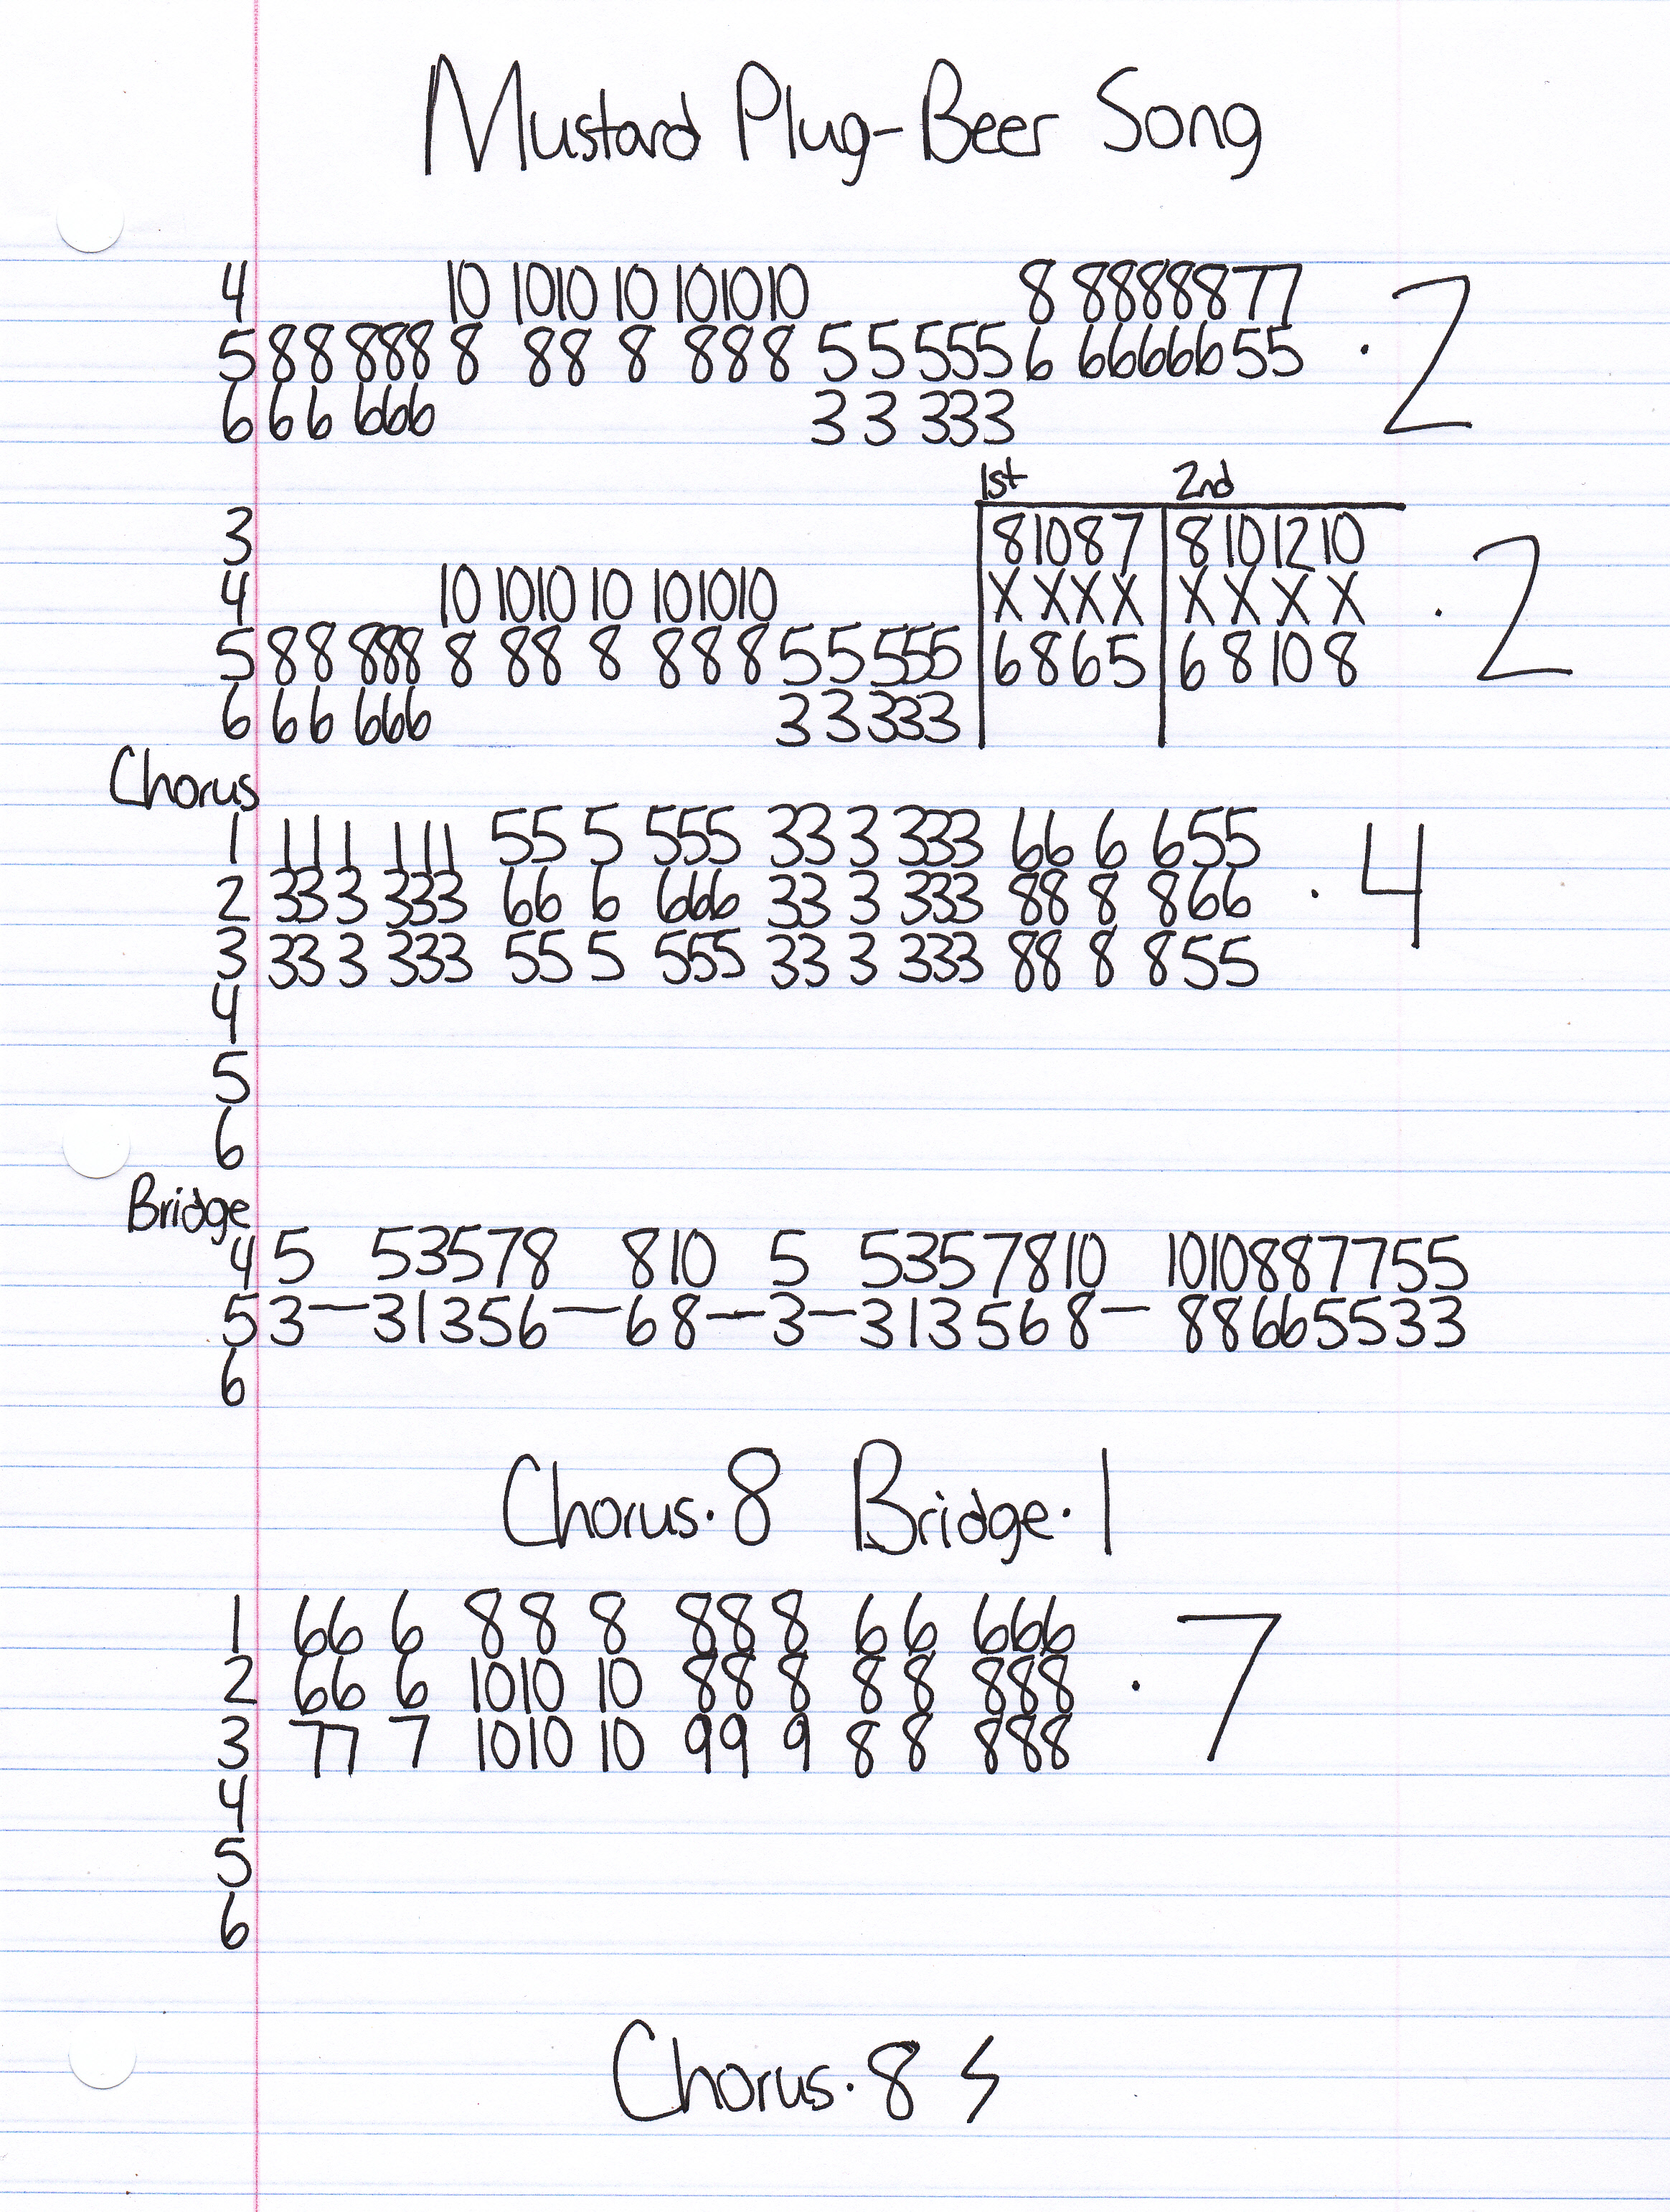 Mustard Plug-Beer Song
4 10 1010 10 101010 8 8888877
5 88 888 8 88 8 888 5 5 555 6 6666655 · 2
6 66 666 3 3 333
1st 2nd
3 81087 8101210
4 10 1010 10 101010 X X X X X X X X · 2
5 88 888 8 88 8 888 55 555 6865 68108
6 66 666 3 3 333
Chorus
1 111 111 55 5 555 33 3 333 66 6 655
2 33 3 333 66 6 666 33 3 333 88 8 866 · 4
3 33 3 333 55 5 555 33 3 333 88 8 855
4
5
6
Bridge
4 5 53578 810 5 5357810 1010887755
5 3—31356—68—3—313568— 88665533
6
Chorus·8 Bridge·1
1 66 6 88 8 888 66 666
2 66 6 1010 10 88 8 88 888 · 7
3 77 7 1010 10 99 9 88 888
4
5
6
Chorus·8